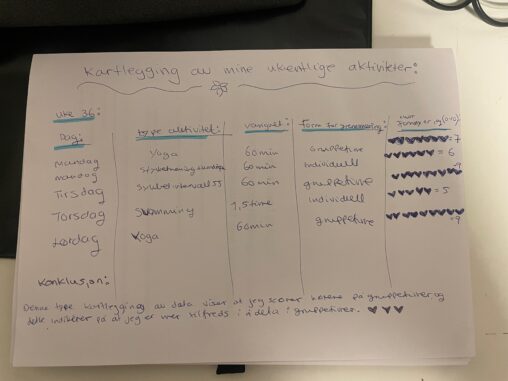 Kartlegging av mine ukentlige aktiviteter:
uke 36:
Dag: type aktivitet: varighet: Form for
Mandag Yoga 60 min Gruppetime = 7
Mandag 60 min Individuell = 6
Tirsdag 60 min gruppetime 9
Torsdag 1,5 time Individuell = 5
Lørdag Yoga 60 min gruppetime 9
Konklusjon:
Denne type kartlegging av data viser at jeg scorer høyere på gruppetimer og
dette indikerer på at jeg er mer tilfreds i å delta i gruppetimer. ♥ ♥ ♥